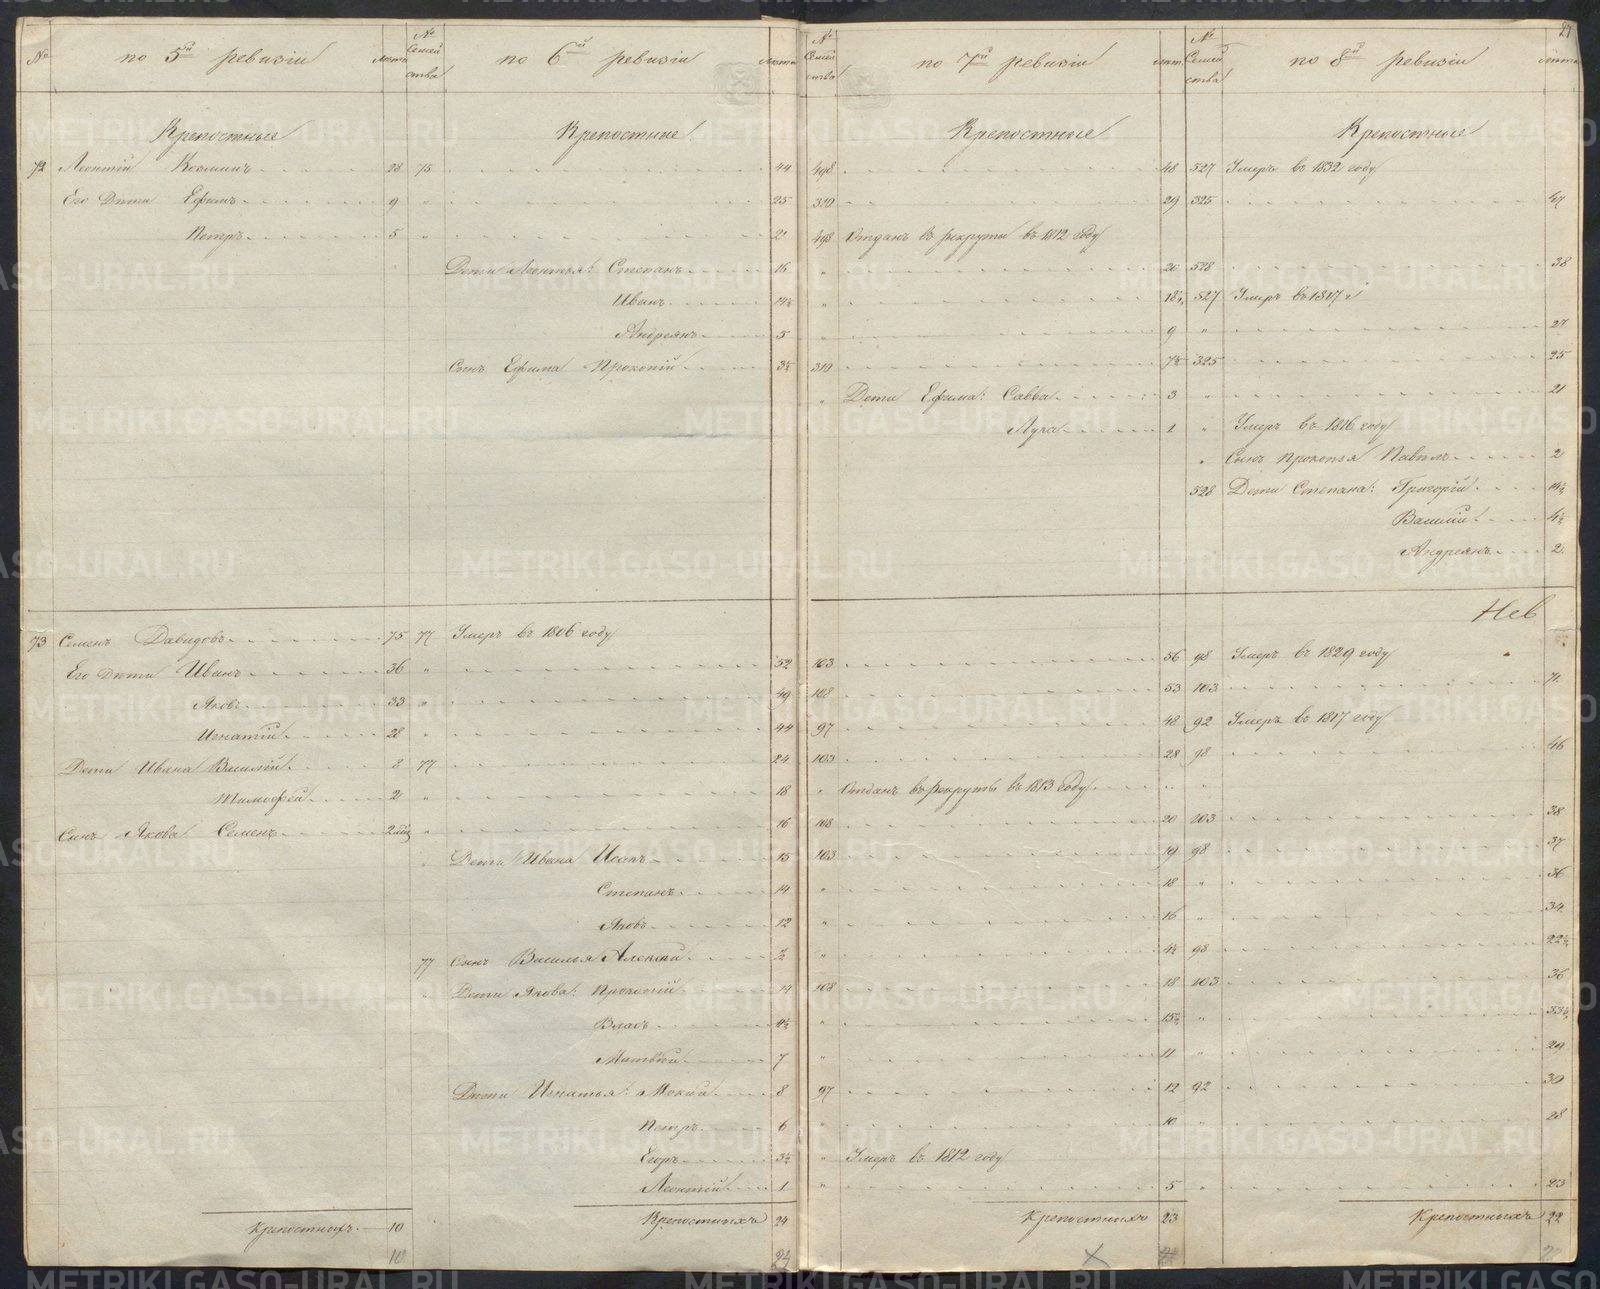 27
№ по 5й ревизіи лѣта № Семейства по 6й ревизіи лѣта № Семейства по 7й ревизіи лѣта № Семейства по 8й ревизіи лѣта
Крепостные Крепостные Крепостные Крепостные
72 Леонтій Козминъ 28 75 44 498 48 527 Умеръ въ 1832 году
Его Дѣти Ефимъ 9 " 25 310 29 325 47
Петръ 5 " 21 498 Отданъ въ рекруты въ 1812 году
Дѣти Леонтья: Степанъ 16 " 20 528 38
Иванъ 14½ " 18½ 527 Умеръ въ 1817 г
Андреянъ 5 " 9 " 27
Сынъ Ефима Прокопій 3½ 310 7½ 325 25
" Дѣти Ефима: Савва 3 " 21
Лука 1 " Умеръ въ 1816 году
" Сынъ Прокопья Павелъ 2
528 Дѣти Степана: Григорій 14½
Василій 4½
Андреянъ 2
Нев
73 Семенъ Давидовъ 75 77 Умеръ въ 1806 году
Его Дѣти Иванъ 36 " 52 103 56 98 Умеръ въ 1829 году
Яковъ 33 " 49 108 53 103 71
Игнатій 28 " 44 97 48 92 Умеръ въ 1817 году
Дѣти Ивана Василій 8 77 24 103 28 98 46
Тимофей 2 " 18 " Отданъ въ рекруты въ 1813 году " "
Сынъ Якова Семенъ " 16 108 20 103 38
Дѣти Ивана Исакъ 15 103 19 98 37
Степанъ 14 " 18 " 36
Яковъ 12 " 16 " 34
77 Сынъ Василья Алексѣй ½ " 4½ 98 22½
" Дѣти Якова: Прокопій 14 108 18 103 36
Власъ " 15½ " 33½
Матвѣй 7 " 11 " 29
Дѣти Игнатья: Мокѣй 8 97 12 92 30
Петръ 6 " 10 " 28
Егоръ 3½ " Умеръ въ 1812 году
Леонтій 1 " 5 " 23
Крепостныхъ 10 Крепостныхъ 24 Крепостныхъ 23 Крепостныхъ 22
10 24
METRIKI.GASO-URAL.RU